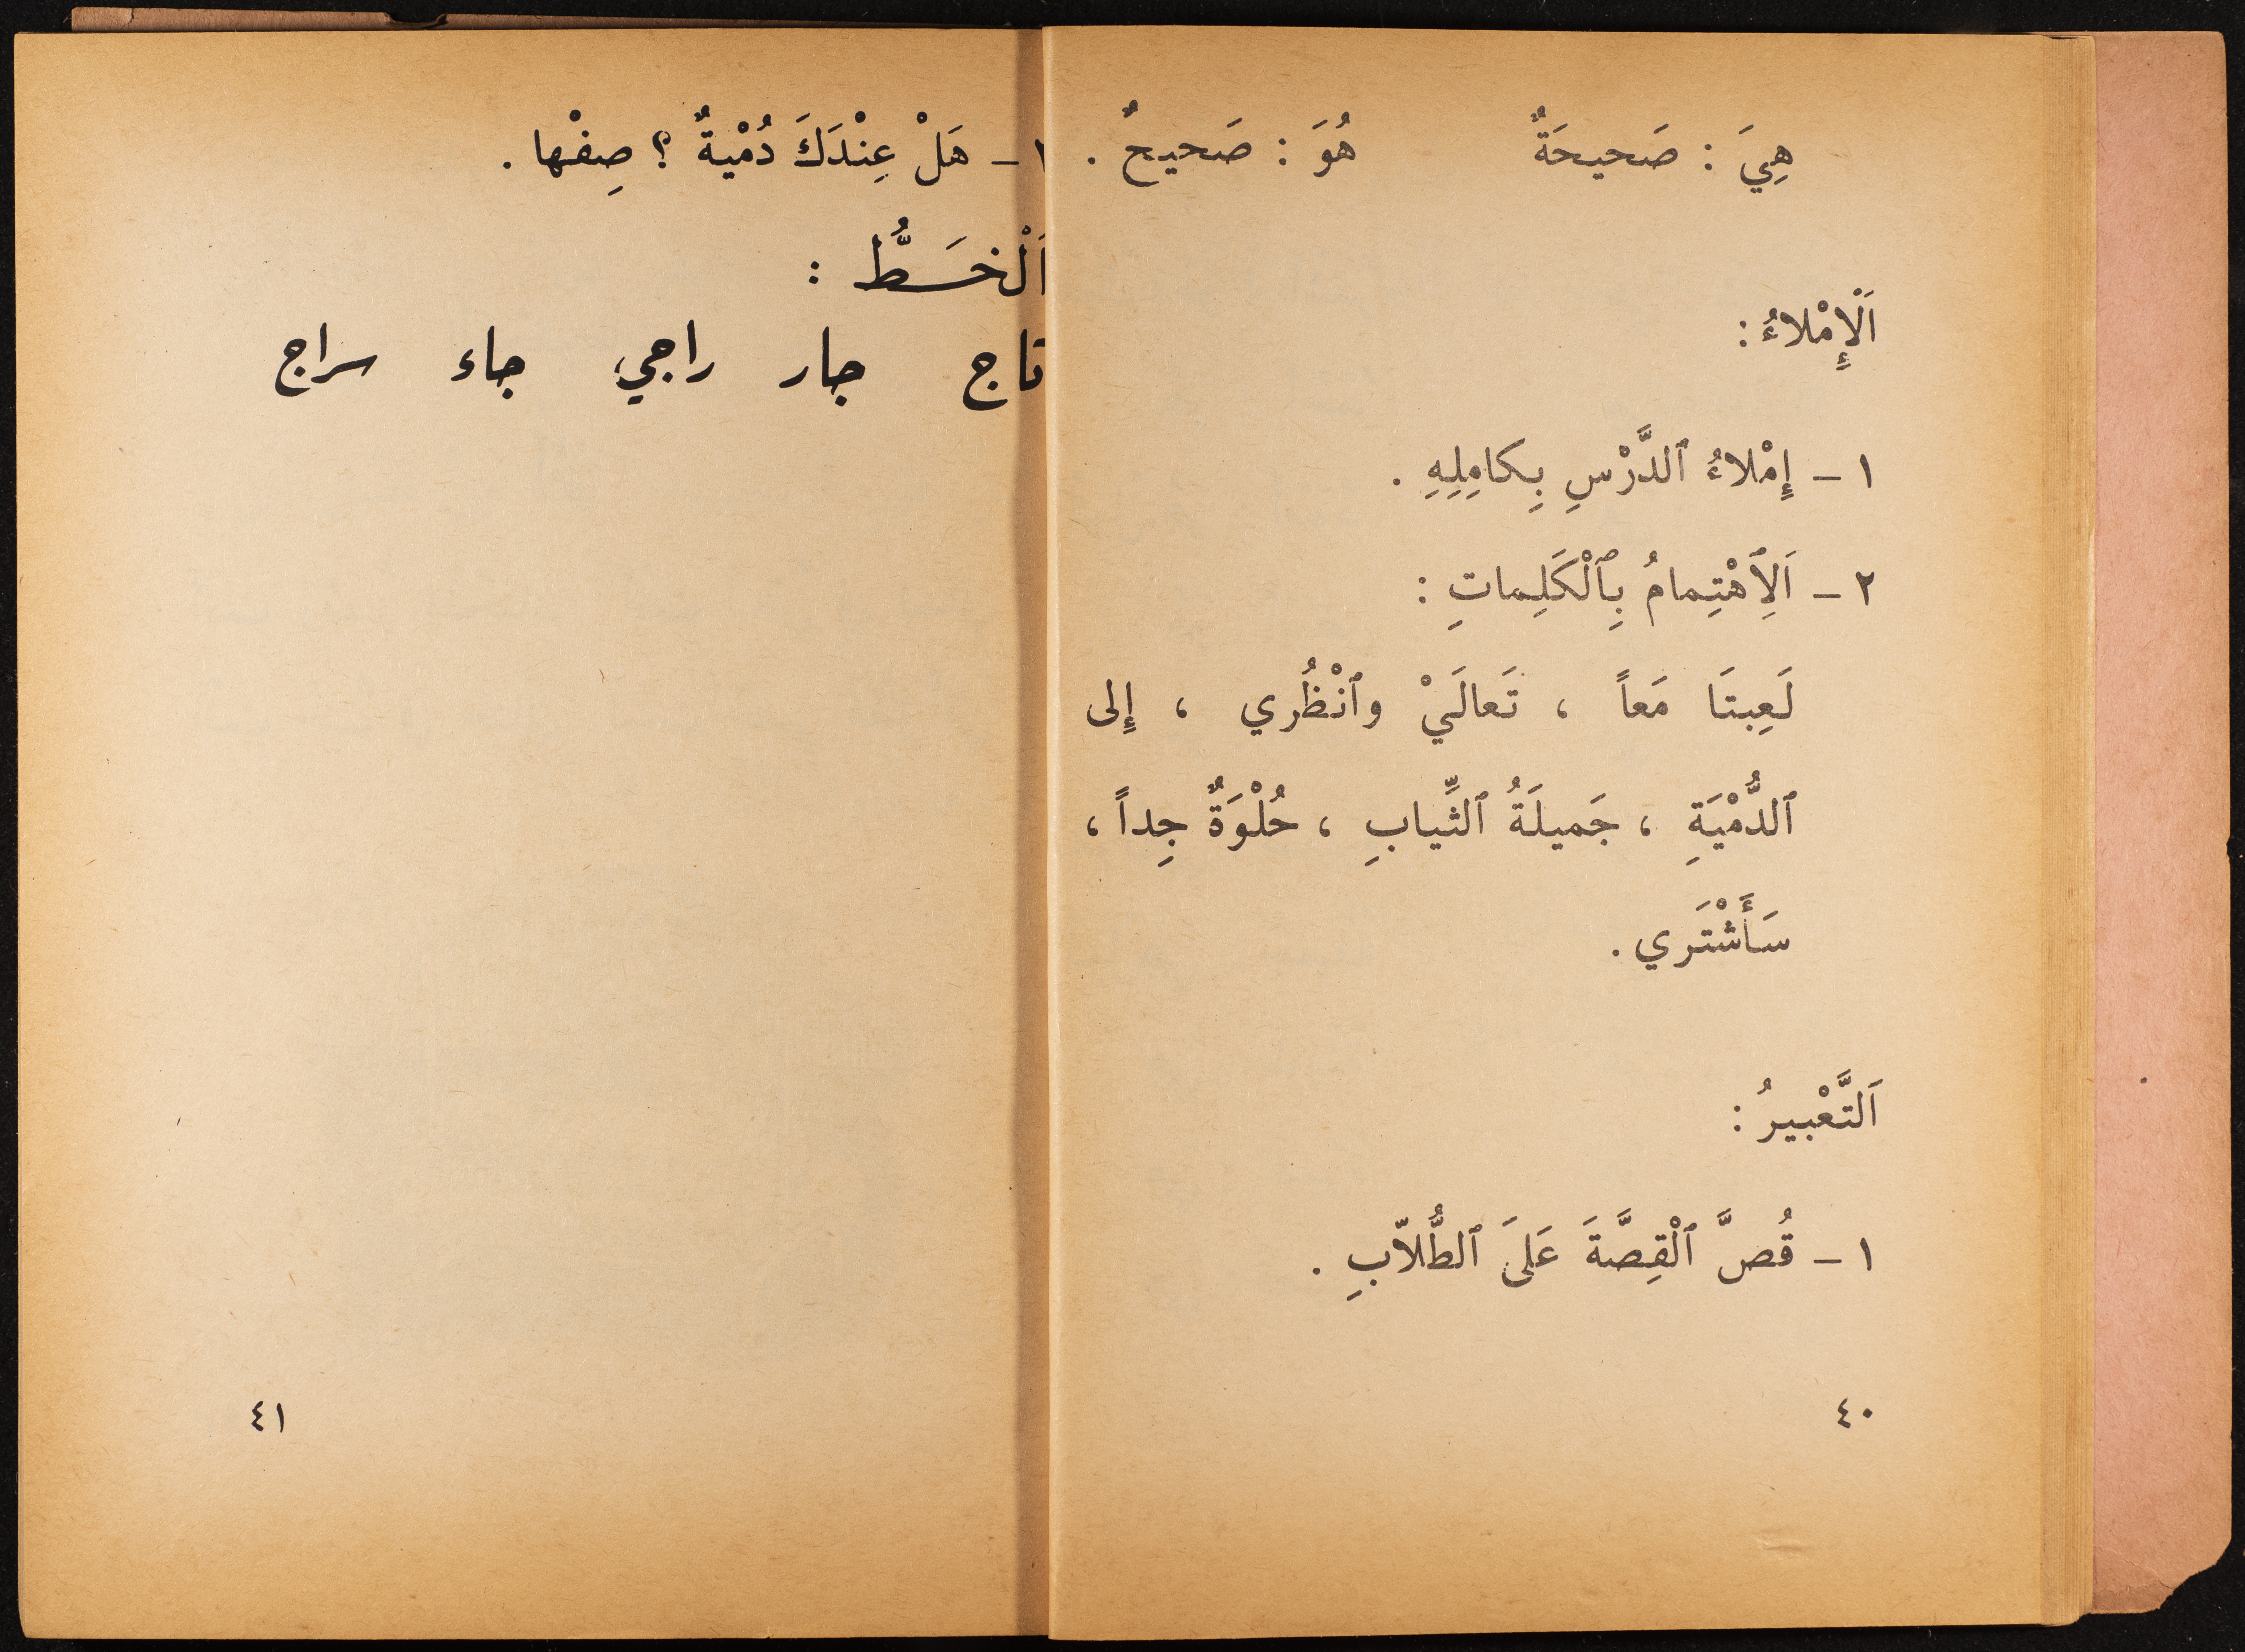 هِيَ : صَحيحَةٌ هُوَ : صَحيحٌ .
اَلْإِمْلاءُ :
١ - إِمْلاءُ ٱلدَّرْسِ بِكامِلِهِ .
٢ - اَلِٱهْتِمامُ بِٱلْكَلِماتِ :
لَعِبتَا مَعاً ، تَعالَيْ وٱنْظُري ، إِلى
ٱلدُّمْيَةِ ، جَميلَةُ ٱلثِّيابِ ، حُلْوَةٌ جِداً ،
سَأَشْتَري .
اَلتَّعْبيرُ :
١ - قُصَّ ٱلْقِصَّةَ عَلَى ٱلطُّلاّبِ .
٤٠
- هَلْ عِنْدَكَ دُمْيةٌ ؟ صِفْها .
اَلْخَـطُّ :
تاج جار راجي جاء سراج
٤١